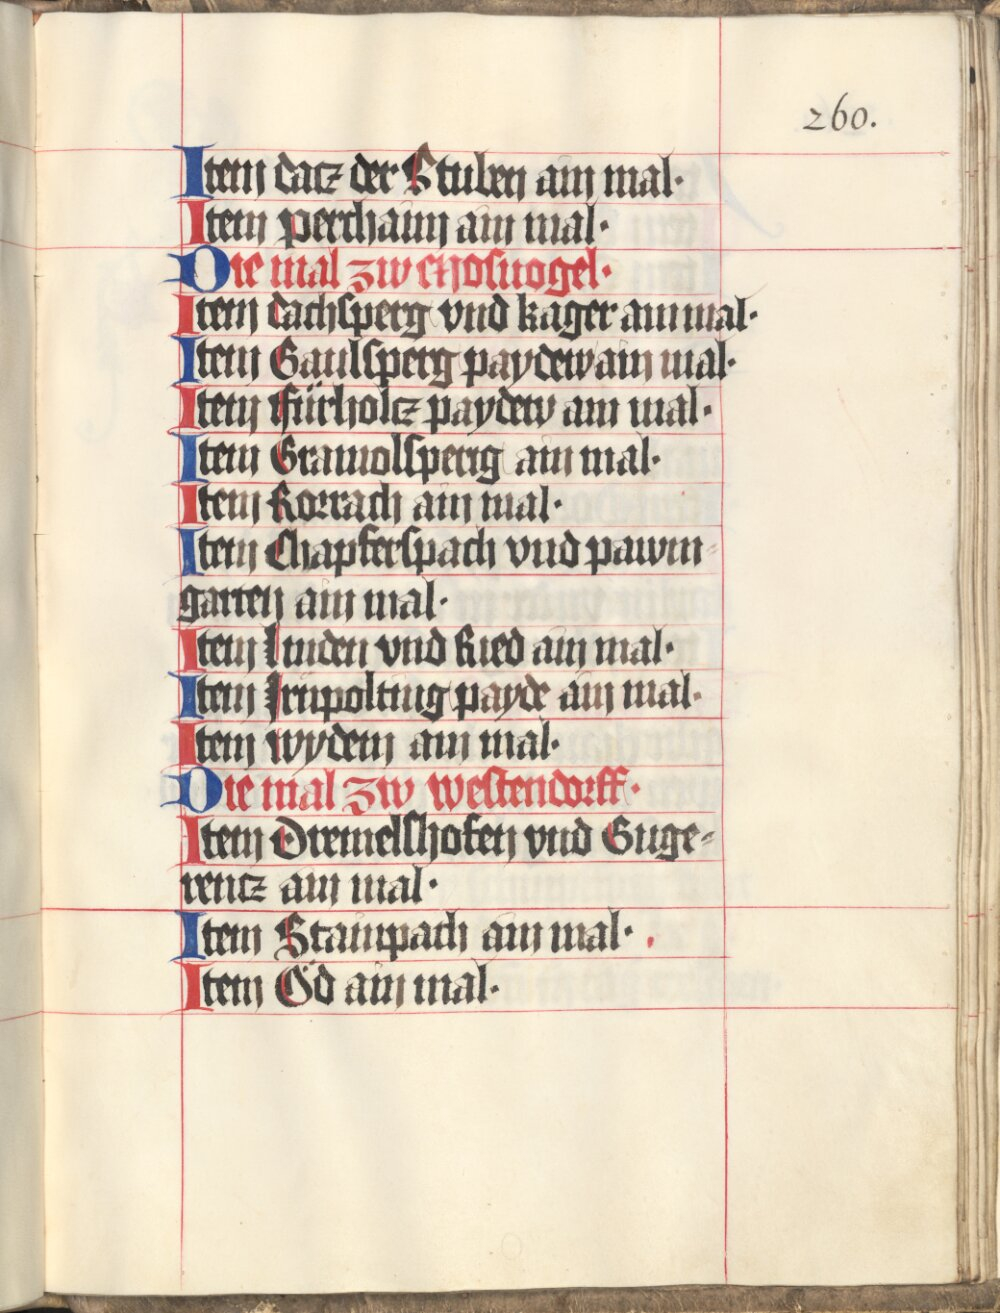 260.
Item dacz der Stuben ain mal·
Item perchaim ain mal·
Die mal zw
Item dachsperg vnd kager ain mal·
Item Gaulsperg paydew ain mal·
Item fürholcz paydew ain mal·
Item Gramolsperg ain mal·
Item Rorrach ain mal·
Item Chapferspach vnd pawm-
garten ain mal·
Item linden vnd Ried ain mal·
Item payde ain mal·
Item wydem ain mal·
Die mal zw westendorff·
Item Dremelshofen vnd Guge-
rencz ain mal·
Item Stainpach ain mal·
Item Öd ain mal·